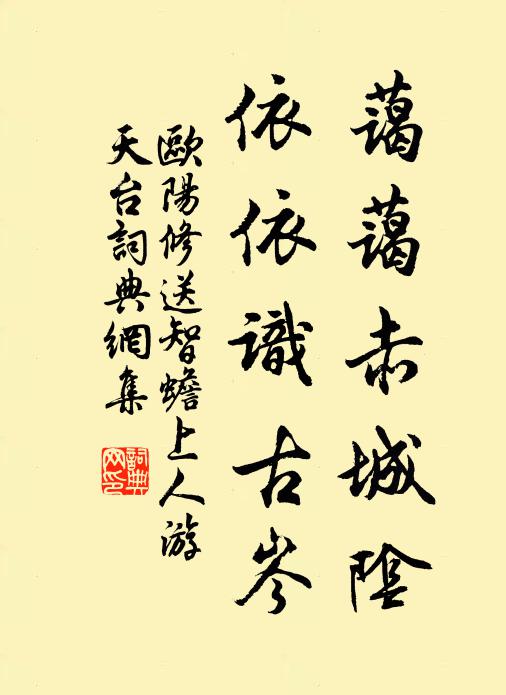 藹藹赤城陰
依依識古岑
歐陽修送智蟾上人游
天台詞典網集
詞典网印